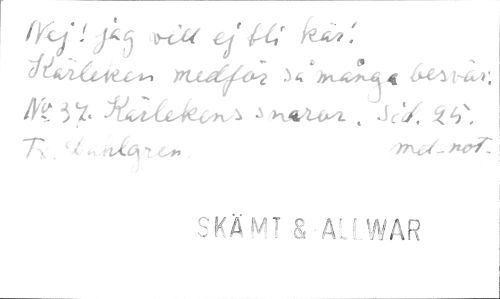 Nej! jag vill ej bli kär!
Kärleken medför så många besvär.
No 37. Kärlekens snaror. Sid. 25.
Fr. Dahlgren. med not.
SKÄMT & ALLWAR